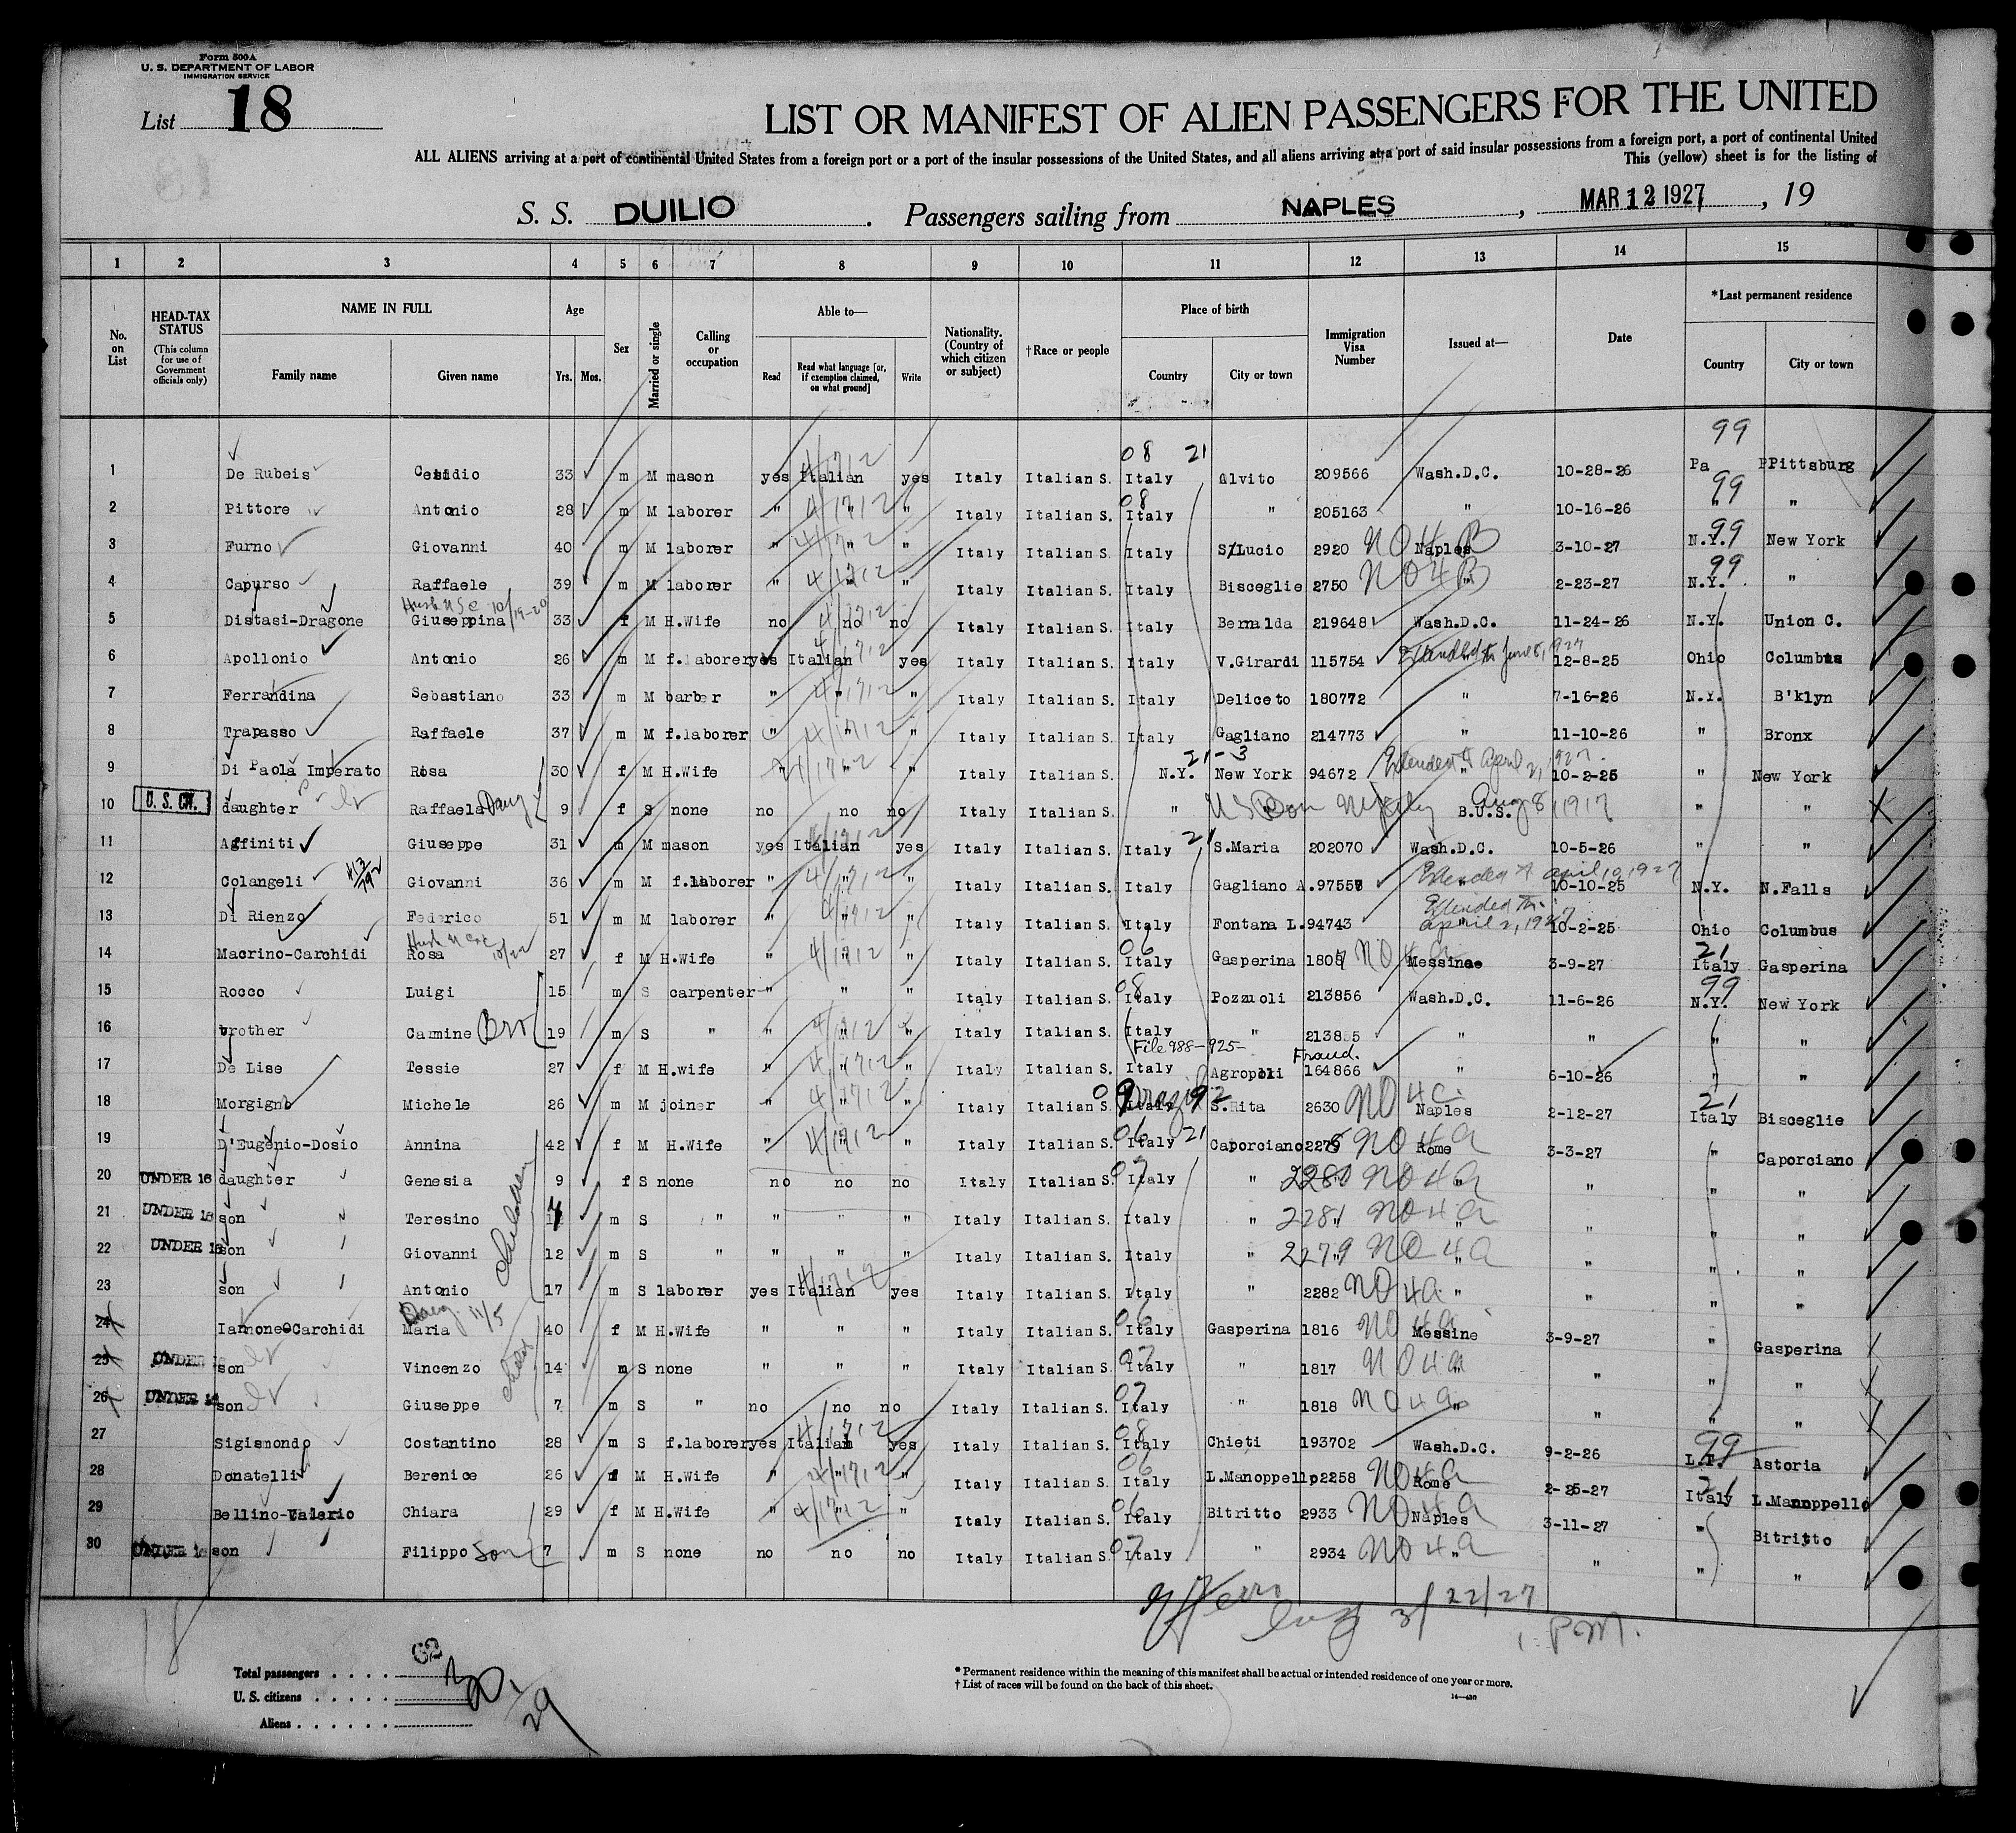 Form 500A
U. S. DEPARTMENT OF LABOR
IMMIGRATION SERVICE
List 18
LIST OR MANIFEST OF ALIEN PASSENGERS FOR THE UNITED
ALL ALIENS arriving at a port of continental United States from a foreign port or a port of the insular possessions of the United States, and all aliens arriving at a port of said insular possessions from a foreign port, a port of continental United
This (yellow) sheet is for the listing of
S. S. DUILIO. Passengers sailing from NAPLES, MAR 12 1927, 19
1 2 3 4 5 6 7 8 9 10 11 12 13 14 15
No. on List
HEAD-TAX STATUS (This column for use of Government officials only)
NAME IN FULL
Family name
Given name
Age
Yrs. Mos.
Sex
Married or single
Calling or occupation
Able to—
Read
Read what language [or, if exemption claimed, on what ground]
Write
Nationality. (Country of which citizen or subject)
†Race or people
Place of birth
Country
City or town
Immigration Visa Number
Issued at—
Date
*Last permanent residence
Country
City or town
08 21 99
1 De Rubeis Cesidio 33 m M mason yes Italian yes Italy Italian S. Italy Alvito 209566 Wash.D.C. 10-28-26 Pa PPittsburg
2 Pittore Antonio 28 m M laborer " " " Italy Italian S. Italy " 205163 " 10-16-26 " "
3 Furno Giovanni 40 m M laborer " " " Italy Italian S. Italy S/Lucio 2920 NO 4 B Naples 3-10-27 N.Y. New York
4 Capurso Raffaele 39 m M laborer " " " Italy Italian S. Italy Bisceglie 2750 NO 4 B " 2-23-27 N.Y. "
5 Distasi-Dragone Giuseppina 33 f M H.Wife no no no Italy Italian S. Italy Bernalda 219648 Wash.D.C. 11-24-26 N.Y. Union C.
6 Apollonio Antonio 26 m M f.laborer yes Italian yes Italy Italian S. Italy V.Girardi 115754 Extended to June 8, 1927 12-8-25 Ohio Columbus
7 Ferrandina Sebastiano 33 m M barber " " " Italy Italian S. Italy Deliceto 180772 " 7-16-26 N.Y. B'klyn
8 Trapasso Raffaele 37 m M f.laborer " " " Italy Italian S. Italy Gagliano 214773 " 11-10-26 " Bronx
9 Di Paola Imperato Rosa 30 f M H.Wife " " " Italy Italian S. N.Y. New York 94672 Extended to April 2, 1927. 10-2-25 " New York
10 U. S. CIT. daughter Raffaela Daug 9 f S none no no no Italy Italian S. " US Born B.U.S. Aug 8, 1917 " "
11 Affiniti Giuseppe 31 m M mason yes Italian yes Italy Italian S. Italy S.Maria 202070 Wash.D.C. 10-5-26 " "
12 Colangeli Giovanni 36 m M f.laborer " " " Italy Italian S. Italy Gagliano A. 97557 Extended to April 10, 1927 10-10-25 N.Y. N.Falls
13 Di Rienzo Federico 51 m M laborer " " " Italy Italian S. Italy Fontana L. 94743 Extended to April 2, 1927 10-2-25 Ohio Columbus
14 Macrino-Carchidi Rosa 27 f M H.Wife " " " Italy Italian S. Italy Gasperina 1809 Messina 3-9-27 Italy Gasperina
15 Rocco Luigi 15 m S carpenter " " " Italy Italian S. Italy Pozzuoli 213856 Wash.D.C. 11-6-26 N.Y. New York
16 brother Carmine Bro 19 m S " " " " Italy Italian S. Italy " 213855 " " " "
File 988-925- Fraud.
17 De Lise Tessie 27 f M H.wife " " " Italy Italian S. Italy Agropoli 164866 " 6-10-26 " "
18 Morgigno Michele 26 m M joiner " " " Italy Italian S. Italy Brazil S.Rita 2630 NO 4 C. Naples 2-12-27 Italy Bisceglie
19 D'Eugenio-Dosio Annina 42 f M H.Wife " " " Italy Italian S. Italy Caporciano 2278 NO 4 a Rome 3-3-27 " Caporciano
20 UNDER 16 daughter Genesia 9 f S none no no no Italy Italian S. Italy " 2280 NO 4 a " " " "
21 UNDER 16 son Teresino m S " " " " Italy Italian S. Italy " 2281 NO 4 a " " " "
22 UNDER 16 son Giovanni 12 m S " " " " Italy Italian S. Italy " 2279 NO 4 a " " " "
23 son Antonio 17 m S laborer yes Italian yes Italy Italian S. Italy " 2282 NO 4 a " " " "
24 Iannone-Carchidi Maria 40 f M H.Wife " " " Italy Italian S. Italy Gasperina 1816 NO 4 a Messine 3-9-27 " Gasperina
25 UNDER son Vincenzo 14 m S none " " " Italy Italian S. Italy " 1817 NO 4 a " " "
26 UNDER 16 son Giuseppe 7 m S " no no no Italy Italian S. Italy " 1818 NO 4 a " " " "
27 Sigismondo Costantino 28 m S f.laborer yes Italian yes Italy Italian S. Italy Chieti 193702 Wash.D.C. 9-2-26 Astoria
28 Donatelli Berenice 26 f M H.Wife " " " Italy Italian S. Italy L.Manoppello 2258 NO 4 a Rome 2-25-27 Italy L.Manoppello
29 Bellino-Valerio Chiara 29 f M H.Wife " " " Italy Italian S. Italy Bitritto 2933 NO 4 a Naples 3-11-27 " Bitritto
30 UNDER 16 son Filippo Son 7 m S none no no no Italy Italian S. Italy " 2934 NO 4 a " " " "
3/22/27
1 P.M.
Total passengers
U. S. citizens
Aliens
29
* Permanent residence within the meaning of this manifest shall be actual or intended residence of one year or more.
† List of races will be found on the back of this sheet.